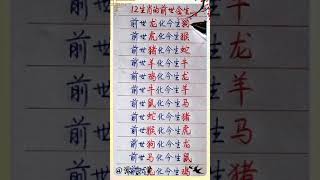 12生肖的前世今生
前世龙化今生狗
前世虎化今生猴
前世猪化今生蛇
前世羊化今生牛
前世鸡化今生龙
前世牛化今生羊
前世鼠化今生马
前世蛇化今生猪
前世猴化今生虎
前世狗化今生龙
前世马化今生鼠
化今生鸡